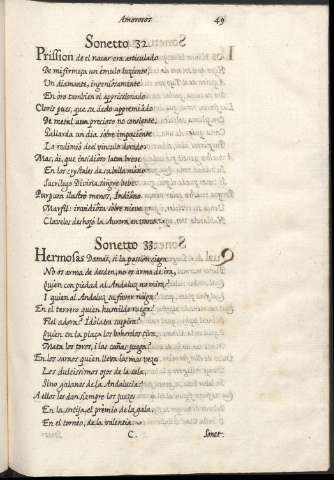 Amorosos. 49
Sonetto 32.
Prission de el nacar era articulado
De mi firmeza un émulo luziente,
Un diamante, ingeniosamente
En oro tambien el aprissionado.
Cloris pues, que su dedo apremiado
De metal aun precioso no consiente,
Gallarda un dia sobre impaciente
Lo redimiò de el vinculo dorado.
Mas, ai, que insidioso laton breve
En los crystales de su bella mano
Sacrilego divina sangre bebe:
Purpura ilustrò menos, Indiano
Marfil: invidiosa sobre nieve
Claveles deshojò la Aurora en vano.
Sonetto 33.
Hermosas Damas, si la passion ciega
No os arma de desden, no os arma de ira,
Quien con piedad al Andaluz no mira,
I quien al Andaluz su favor niega?
En el terrero quien humilde ruega?
Fiel adora? Idolatra suspira?
Quien en la plaça los bohordos tira,
Mata los toros, i las cañas juega?
En los saraos quien lleva las mas vezes
Los dulcissimos ojos de la sala,
Sino galanes de la Andalucia?
A ellos les dan siempre los juezes
En la sortija, el premio de la gala,
En el torneo, de la valentia.
C. Sonet-